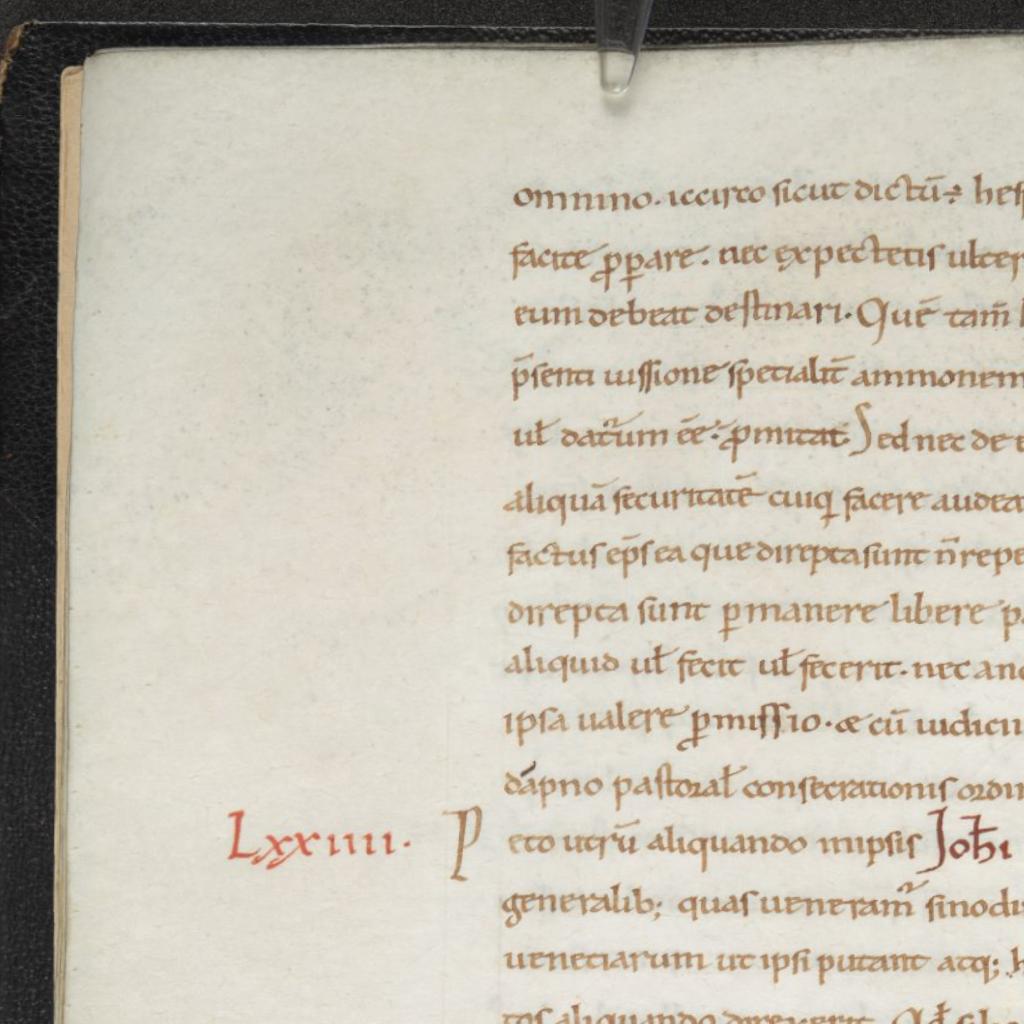 omnino. iccirco sicut dictū÷ hes
facite p̱ꝑare. nec expectetis ulter
eum debeat destinari. Quē tam̄
p̄senti iussione specialit̄ ammonem
ul̄ datūrum ēe: ꝓmittat. Sed nec de
aliquā securitatē cuiq facere audea
factus ep̄s ea que direpta sunt n̄ repe
direpta sunt ꝑmanere libere p
aliquid ul̄ fecit ul̄ fecerit. nec an
ipsa ualere ꝓmissio. æ cū iudicii
dāpno pastoral̄ consecrationis ordin
Lxxiiii. P eto utrū aliquando in ipsis Joh̄i
generalib; quas ueneram̄ sinodi
uenetiarum ut ipsi putant atq; h
tos aliquando direxerit.